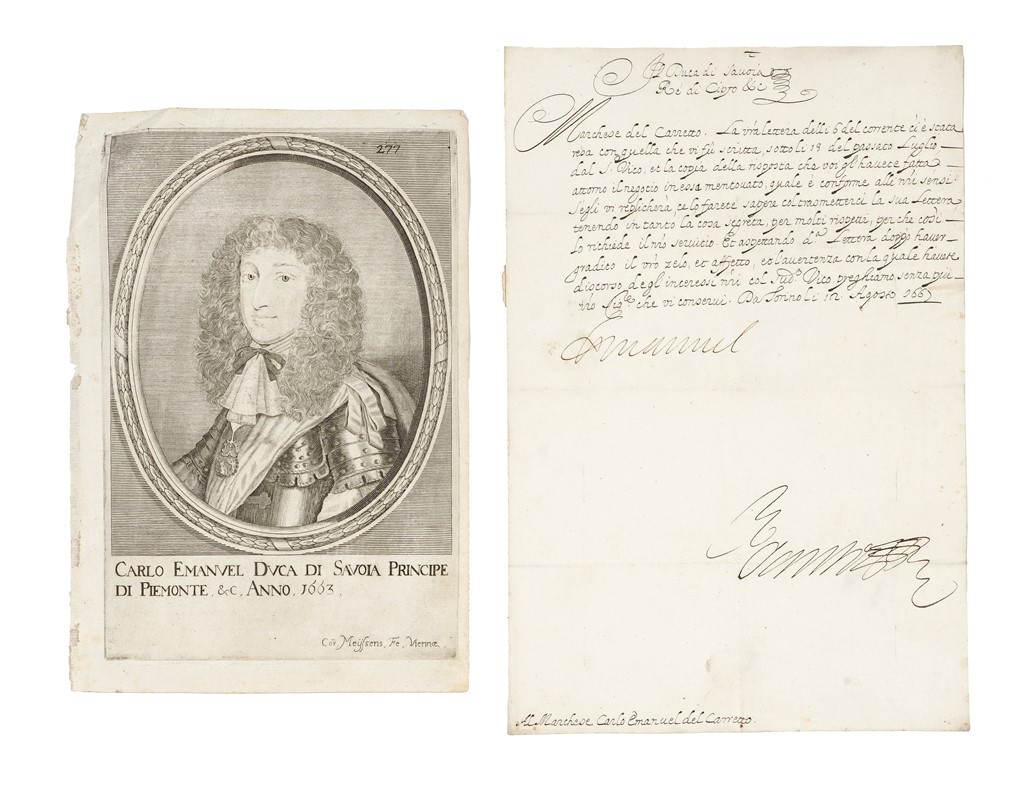 277
CARLO EMANVEL DVCA DI SAVOIA PRINCIPE
DI PIEMONTE, &C, ANNO, 1663,
Cor, Meÿssens, Fe, Viennæ,
Il Duca di Savoia
Re di Cipro &c
Marchese del Carretto. La vra lettera delli 6 del corrente ci è stata
resa con quella che vi fù scritta, sotto li 18 del passato Luglio
dal S. Vico, et la copia della risposta che voi gl'havete fatta
attorno il negotio in essa mentovato, quale è conforme alli nri sensi
s'egli vi replicherà, ce lo farete sapere col trasmetterci la sua Lettera
tenendo in tanto la cosa segreta, per molti rispetti, perche così
lo richiede il nro servicio. Et aspettando d.ª Lettera doppo haver
gradito il vro zelo, et affetto, et l'avertenza con la quale havete
discorso degl'interessi nri col sud.º Vico, preghiamo senza più
nro Sig.re che vi conservi. Da Torino li 12 Agosto 1667
Emanuel
Al Marchese Carlo Emanuel del Carretto.